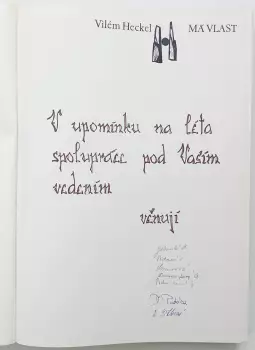 Vilém Heckel MÁ VLAST
V upomínku na léta
spolupráce pod Vaším
vedením
věnují